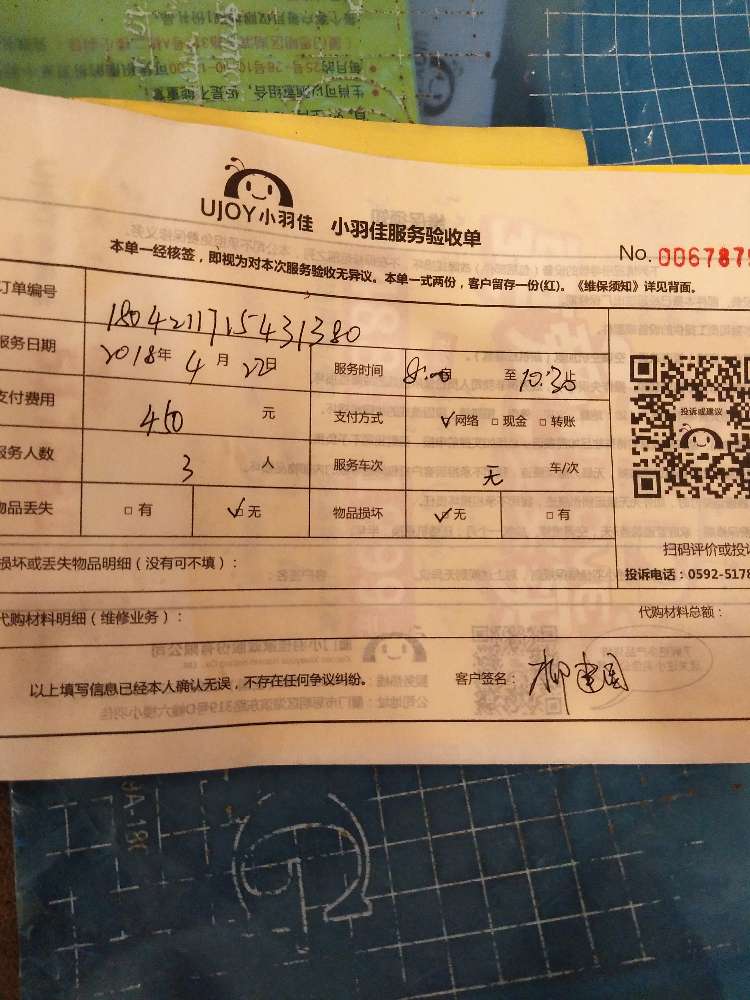 UJOY小羽佳 小羽佳服务验收单
No. 006787
本单一经核签，即视为对本次服务验收无异议。本单一式两份，客户留存一份(红)。《维保须知》详见背面。
订单编号
服务日期 2018年 4月 22日 服务时间 8:00 至 10:30止
支付费用 450 元 支付方式 ☑网络 □现金 □转账
服务人数 3 人 服务车次 无 车/次
物品丢失 □有 ☑无 物品损坏 ☑无 □有
投诉或建议
损坏或丢失物品明细（没有可不填）：
扫码评价或投诉
投诉电话：0592-5178
代购材料明细（维修业务）： 代购材料总额：
以上填写信息已经本人确认无误，不存在任何争议纠纷。 客户签名： 柳建国